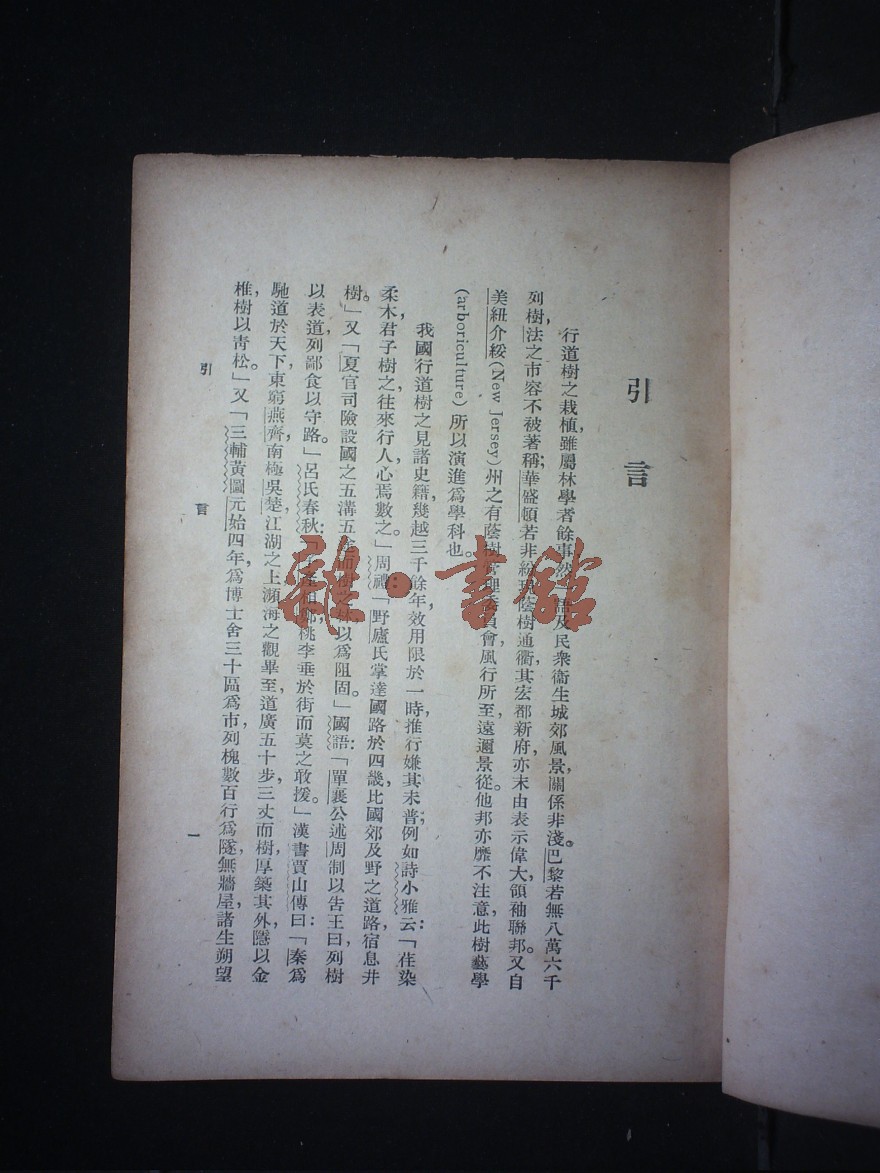 引言
行道樹之栽植，雖屬林學者餘事，然一語及民衆衞生，城郊風景，關係非淺。巴黎若無八萬六千
列樹，法之市容不被著稱；華盛頓若非紛理蔭樹通衢，其宏都新府，亦末由表示偉大，領袖聯邦。又自
美紐介綏(New Jersey)州之有蔭樹管理委員會，風行所至，遠邇景從。他邦亦靡不注意，此樹藝學
(arboriculture)所以演進爲學科也。
我國行道樹之見諸史籍，幾越三千餘年，效用限於一時，推行嫌其未普；例如詩小雅云：「荏染
柔木，君子樹之，往來行人，心焉數之。」周禮「野廬氏掌達國路於四畿，比國郊及野之道路，宿息井
樹。」又「夏官司險設國之五溝五涂而樹之林，以爲阻固。」國語：「單襄公述周制以告王曰，列樹
以表道，列鄙食以守路。」呂氏春秋：「子產相鄭，桃李垂於街而莫之敢援。」漢書賈山傳曰：「秦爲
馳道於天下，東窮燕齊，南極吳楚，江湖之上，瀕海之觀畢至，道廣五十步，三丈而樹，厚築其外，隱以金
椎，樹以靑松。」又「三輔黃圖元始四年，爲博士舍三十區爲市，列槐數百行爲隧，無牆屋，諸生朔望
引言
一
雜·書館